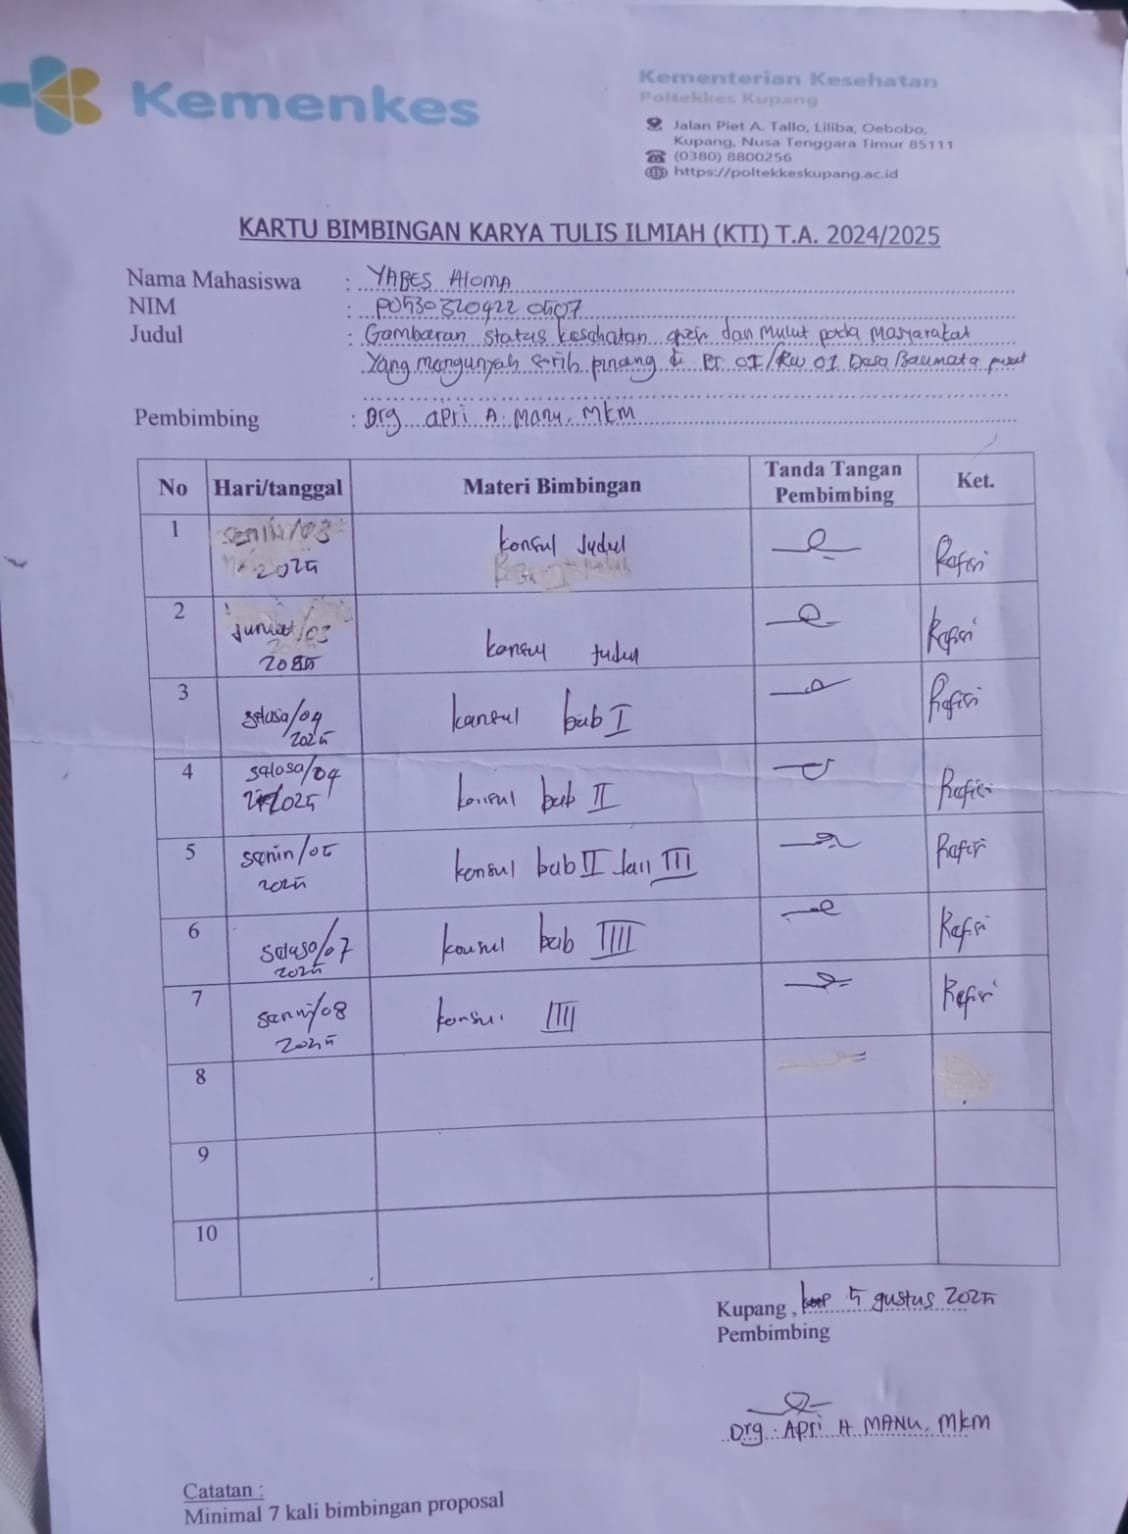 Kemenkes
Kementerian Kesehatan
Poltekkes Kupang
Jalan Piet A. Tallo, Liliba, Oebobo,
Kupang, Nusa Tenggara Timur 85111
(0380) 8800256
https://poltekkeskupang.ac.id
KARTU BIMBINGAN KARYA TULIS ILMIAH (KTI) T.A. 2024/2025
Nama Mahasiswa : YABES ALOMA
NIM : PO5303204220507
Judul : Gambaran status kesehatan gigi dan Mulut pada Masyarakat
Yang mengunyah sirih pinang di RT 01/RW 01 Desa Baumata pusat
Pembimbing : Drg apri A. Manu, MKM
No Hari/tanggal Materi Bimbingan Tanda Tangan Pembimbing Ket.
1 senin/03 2025 konsul Judul Rafisi
2 Jumat/03 2025 konsul judul Rafisi
3 selasa/04 2025 konsul bab I Rafisi
4 selasa/04 2025 konsul bab II Rafisi
5 senin/05 2025 konsul bab II dan III Rafisi
6 selasa/07 2025 konsul bab IIII Rafisi
7 senin/08 2025 konsul IIII Rafisi
8
9
10
Kupang, 5 gustus 2025
Pembimbing
Drg. Apri A MANU, MKM
Catatan :
Minimal 7 kali bimbingan proposal